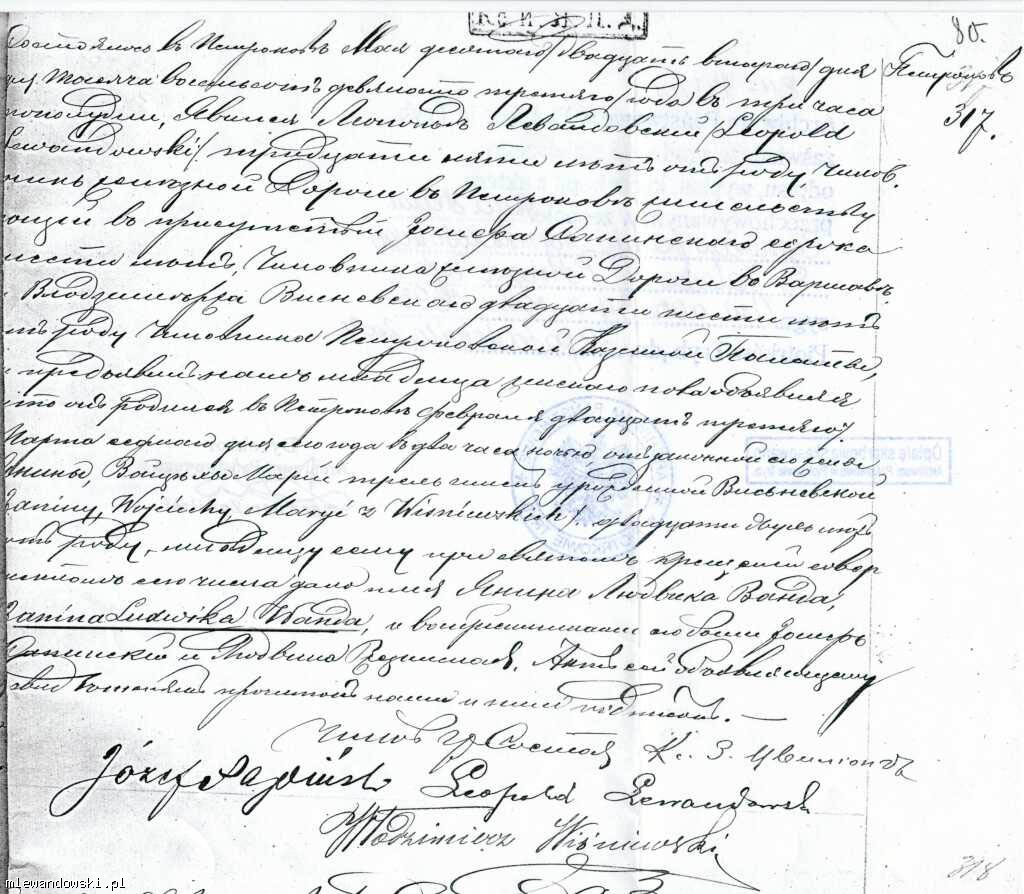 80.
Петроковъ
317.
Состоялось въ Петроковѣ Мая десятаго /двадцать втораго/ дня
тысяча восемьсотъ девяносто третяго года въ три часа
пополудни, Явился Леопольдъ Левандовскій /Leopold
Lewandowski/ тридцати пяти лѣтъ отъ роду, Чинов.
никъ желѣзной Дороги въ Петроковѣ жительству
ющій въ присутствіи Іосифа сорока
шести лѣтъ, Чиновника желѣзной Дороги въ Варшавѣ
Влодзимержа Висневскаго двадцати шести лѣтъ
отъ роду Чиновника Петроковской Казенной Палаты,
и предъявилъ намъ младенца женскаго пола объявляя
что онъ родился въ Петроковѣ Февраля двадцать третяго /
Марта седмаго дня сего года въ два часа ночью отъ законной его жены
Янины, Войцѣхи Маріи трехъ именъ урожденной Висьневской
Janiny, Wojciechy Maryi z Wiśniewskich /. двадцати двухъ лѣтъ
отъ роду, младенцу сему при святомъ крещеніи совер
шенномъ сего числа дано имя Янина Людвика Ванда,
Janina Ludwika Wanda, и воспріемниками его были Іосифъ
и Людвика Актъ сей объявляющему
и свидѣтелямъ прочитанъ нами и ими подписанъ. —
Чинов. гр. Состоя. К. З.
Józef Leopold Lewandowski
Włodzimierz Wiśniewski
318
mlewandowski.pl